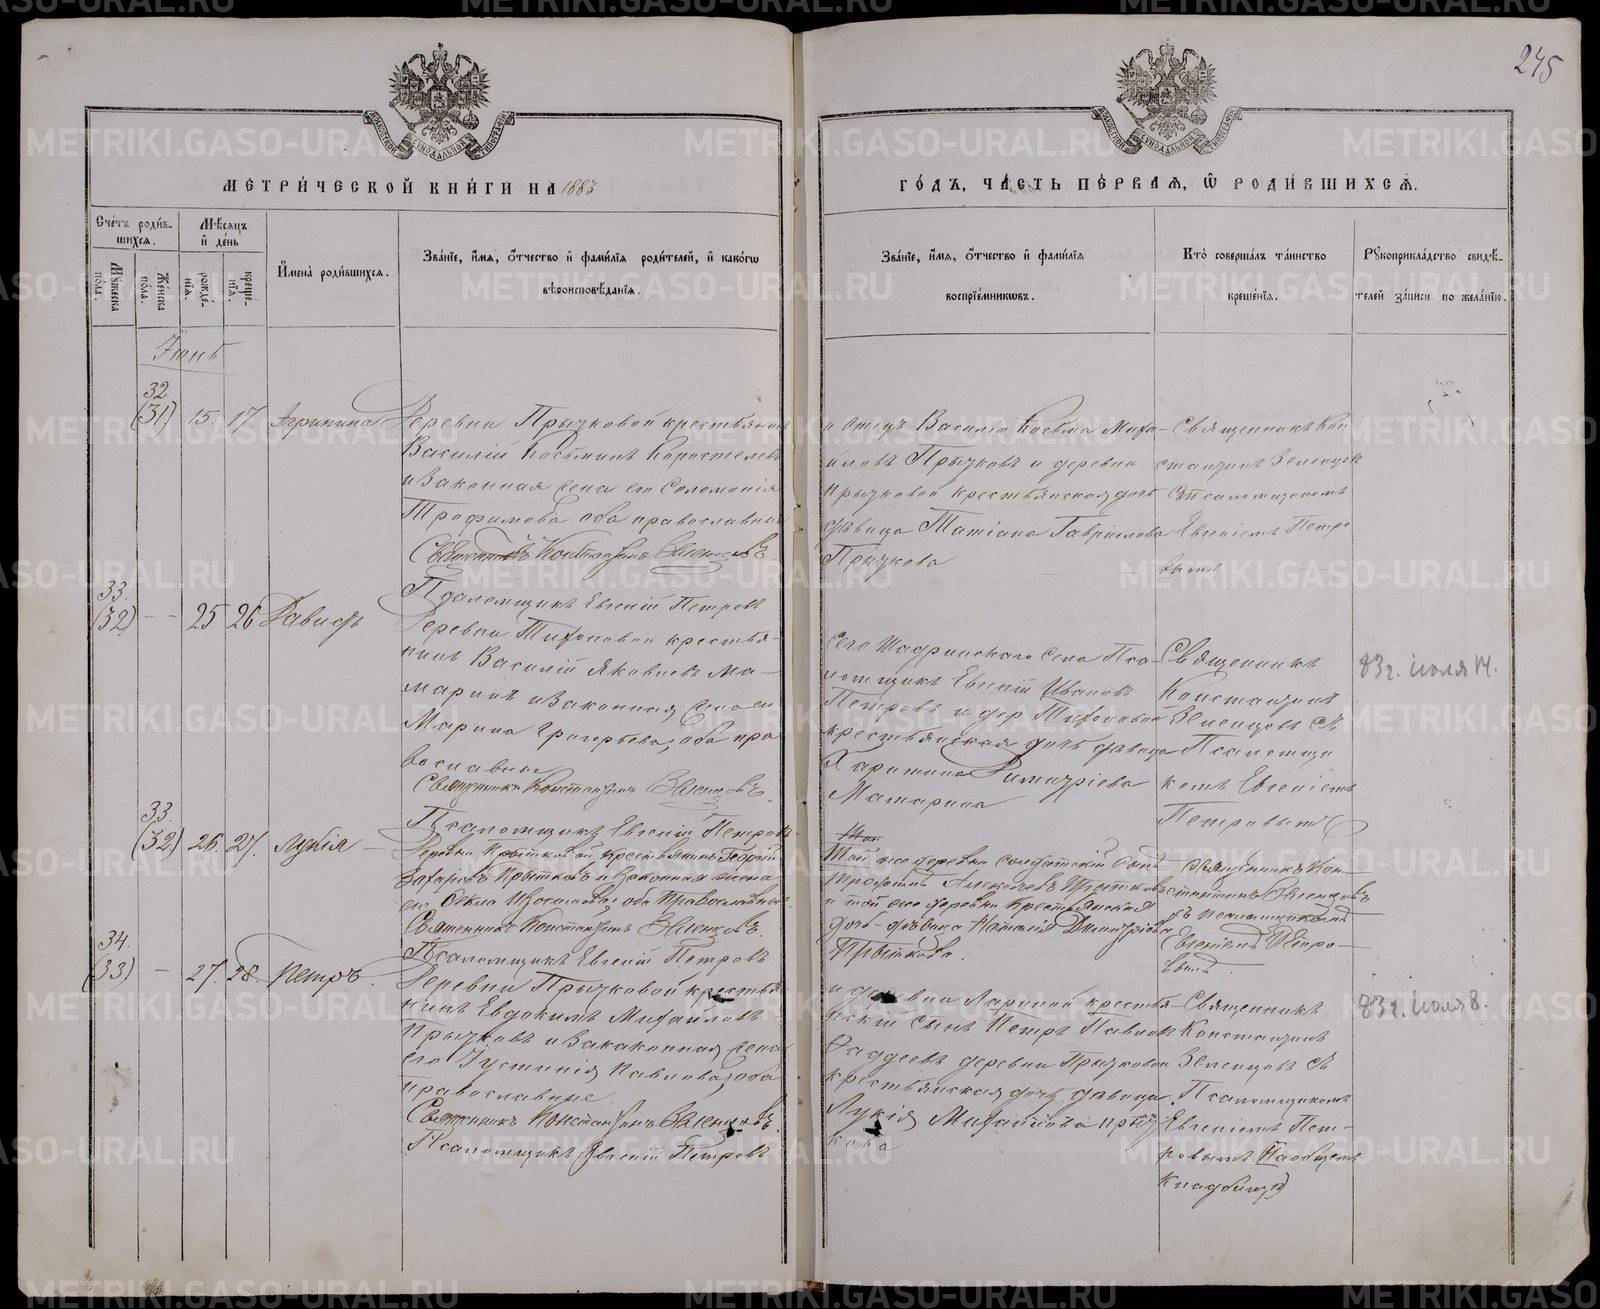 245
МЕТРИ́ЧЕСКОЙ КНИ́ГИ НА 1883
ГО́ДЪ, ЧА́СТЬ ПЕ́РВАЯ, Ѡ РОДИ́ВШИХСѦ.
Счетъ роди́в-
шихся.
Мѣсяцъ
и день
Мужеска
пола.
Женска
пола.
рожде-
нія.
креще-
нія.
Имена роди́вшихся.
Зва́ніе, имя, отчество и фами́лія роди́телей, и како́гѡ
вѣроисповѣ́данія.
Зва́ніе, имя, отчество и фами́лія
воспріе́мниковъ.
Кто̀ соверша́лъ та́инство
креще́нія.
Рукоприкла́дство свидѣ́-
телей за́писи по жела́нію.
Іюнь
32
(31) 15. 17. Агрипина
Деревни Прыжковой крестьянинъ
Василій Косьминъ Коростелевъ
и законная жена его Соломонія
Трофимова оба православные
Священникъ Константинъ Зеленцовъ.
Псаломщикъ Евгеній Петровъ
и отецъ Василія Косьма Миха-
йловъ Прыжковъ и деревни
Прыжковой крестьянская дочь
дѣвица Татіана Гаврилова
Прыжкова
Священникъ Кон
стантинъ Зеленцовъ
съ псаломщикомъ
Евгеніемъ Петро
вымъ
33.
(32) — 25 26 Давидъ
Деревни Тихоновой крестья-
нинъ Василій Яковлевъ Ма-
маринъ и законная жена его
Марина Григорьева, оба пра
вославные
Священникъ Константинъ Зеленцовъ.
Псаломщикъ Евгеній Петровъ
Сего Шадринскаго села Пса-
ломщикъ Евгеній Ивановъ
Петровъ и дер Тихоновой
крестьянская дочь дѣвица
Харитина Димитріева
Мамарина
Священникъ
Константинъ
Зеленцовъ съ
Псаломщи
комъ Евгеніемъ
Петровымъ
83 г. Іюля 14.
33.
(32) 26. 27. Лукія
Деревни Прытковой крестьянинъ Георгій
Захаровъ Прытковъ и законная жена
его Ѳекла Изосимова; оба Православные.
Священникъ Константинъ Зеленцовъ.
Псаломщикъ Евгеній Петровъ
Той же деревни солдатскій сынъ
Трофимъ Алексѣевъ Прытковъ
и той же деревни крестьянская
дочь дѣвица Наталія Димитріева
Прыткова.
Священникъ Кон-
стантинъ Зеленцовъ
съ псаломщикомъ
Евгеніемъ Петро-
вымъ.
34.
(33) — 27. 28. Петръ.
Деревни Прыжковой крестья
нинъ Евдокимъ Михаиловъ
Прыжковъ и Закаконная жена
его Іустинія Павлова, оба
православные.
Священникъ Константинъ Зеленцовъ.
Псаломщикъ Евгеній Петровъ
и деревни Лариной крестья
нскій сынъ Петръ Павловъ
Фаддеевъ деревни Прыжковой
крестьянская дочь дѣвица
Лукія Михайлова Прыж
кова
Священникъ
Константинъ
Зеленцовъ съ
Псаломщикомъ
Евгеніемъ Пет-
ровымъ
83 г. Іюля 8.